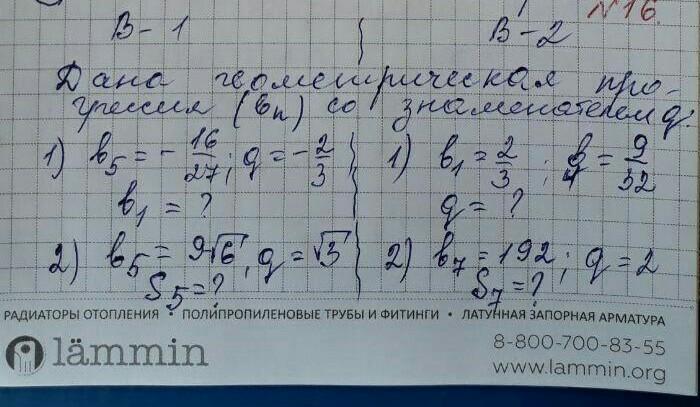 N16.
В-1 В-2
Дана геометрическая про-
грессия (bn) со знаменателем q.
1) b5 = - 16/27; q = - 2/3 1) b1 = 2/3 ; = 9/32
b1 = ? q = ?
2) b5 = 9√6, q = √3 2) b7 = 192; q = 2
S5 = ? S7 = ?
РАДИАТОРЫ ОТОПЛЕНИЯ • ПОЛИПРОПИЛЕНОВЫЕ ТРУБЫ И ФИТИНГИ • ЛАТУННАЯ ЗАПОРНАЯ АРМАТУРА
lämmin 8-800-700-83-55
www.lammin.org